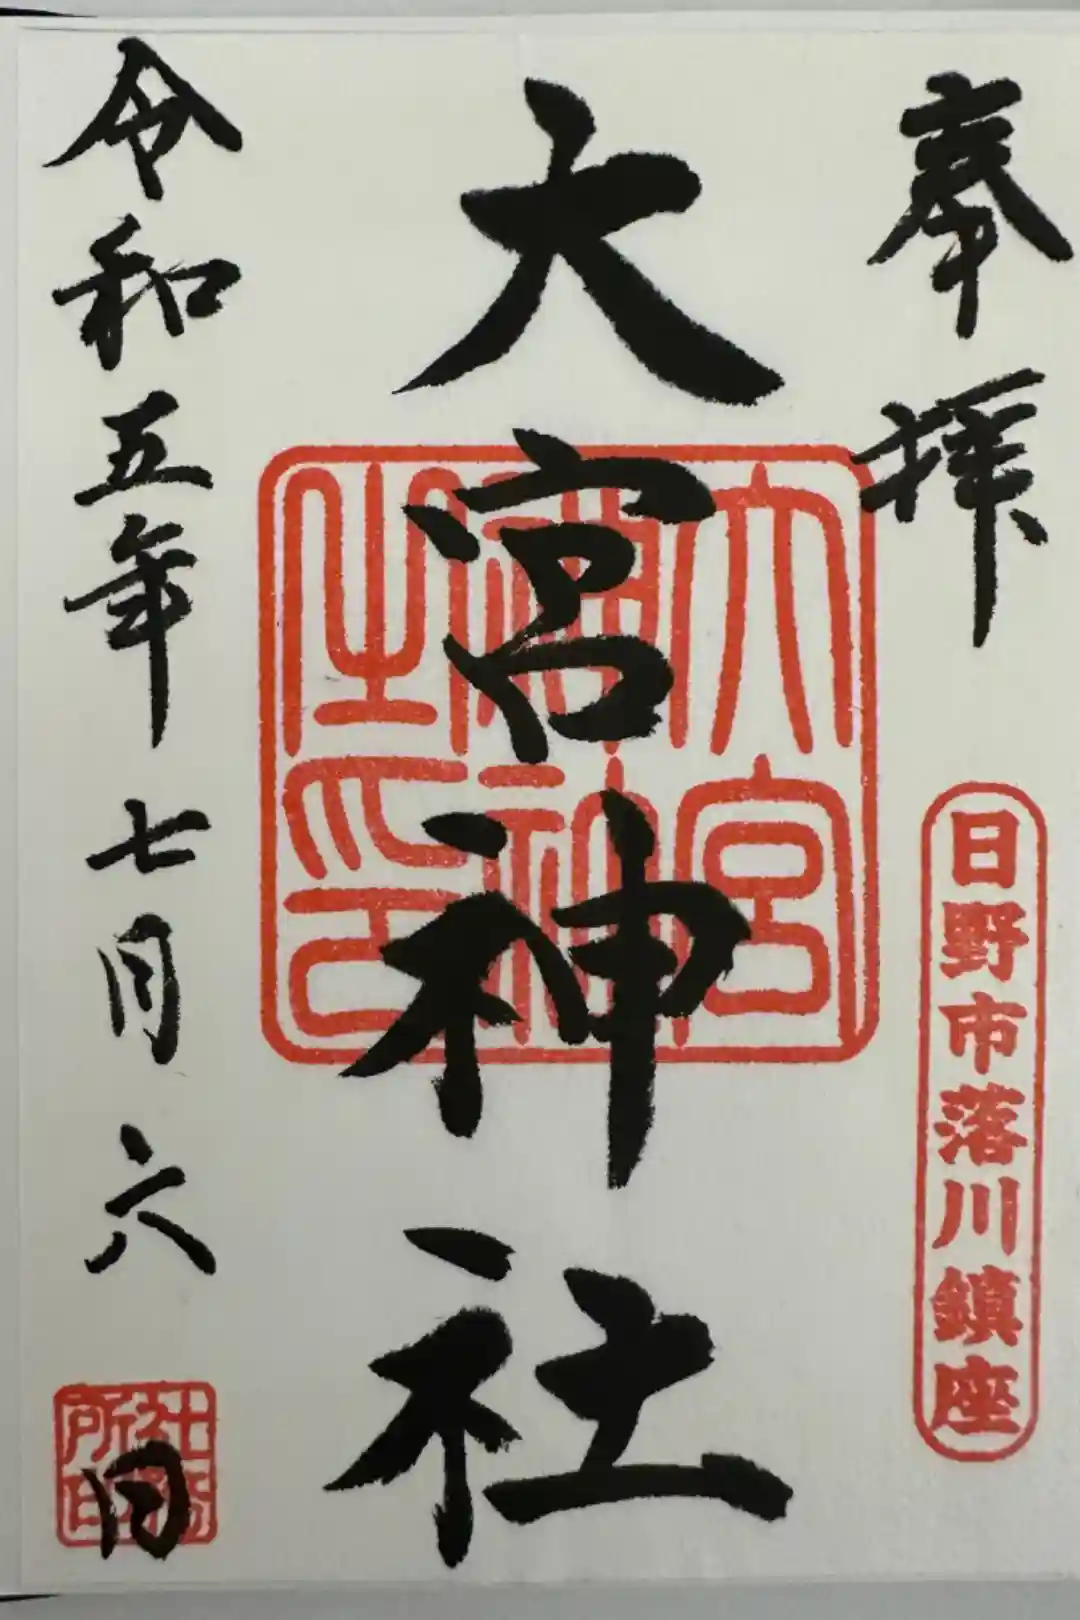 奉拝
日野市落川鎮座
大宮神社
大宮
神社
之印
令和五年七月六日
社務
所印